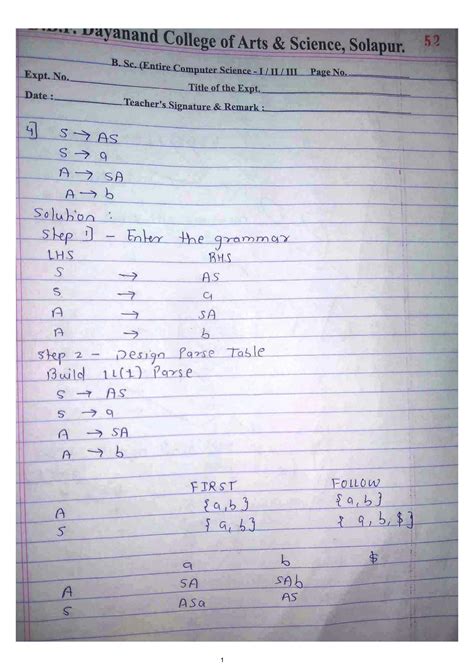 Dayanand College of Arts & Science, Solapur. 52
B. Sc. (Entire Computer Science - I / II / III Page No.
Expt. No.
Title of the Expt.
Date :
Teacher's Signature & Remark :
4] S → AS
S → a
A → SA
A → b
Solution :
Step 1] - Enter the grammar
LHS RHS
S → AS
S → a
A → SA
A → b
Step 2 - Design Parse Table
Build LL(1) Parse
S → AS
S → a
A → SA
A → b
FIRST FOLLOW
A {a,b} {a,b}
S {a,b} {a,b,$}
a b $
A SA SAb
S ASa AS
1